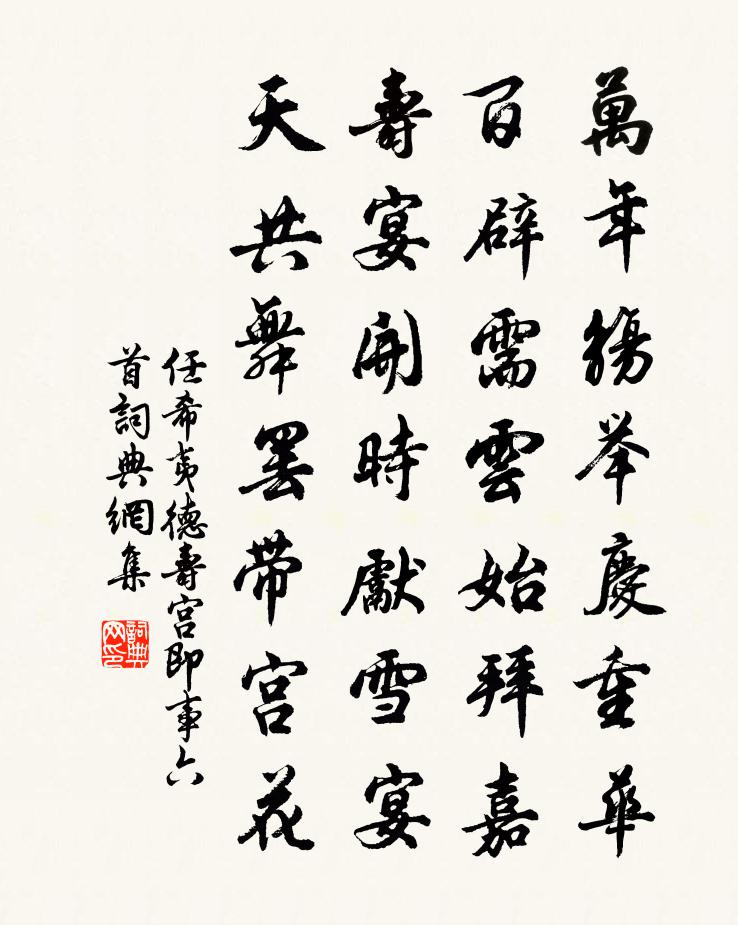 萬年觴举慶重華
百辟需雲始拜嘉
壽宴開時獻雪宴
天共舞罢带宫花
任希夷德壽宫即事六
首詞典網集
詞典网印